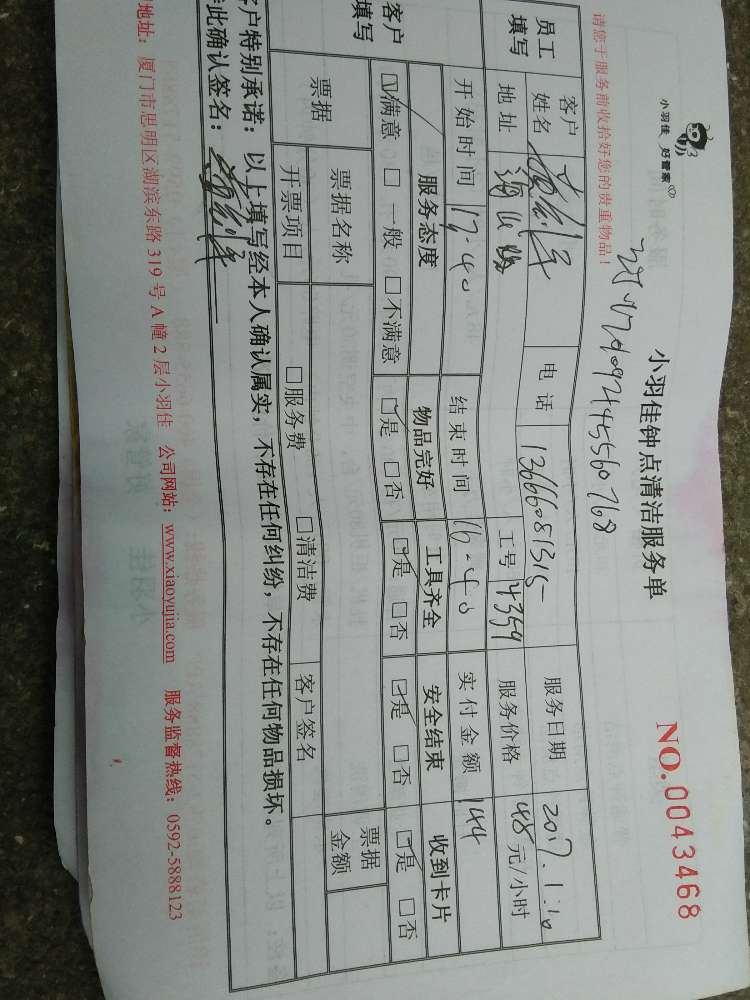 小羽佳 好管家
小羽佳钟点清洁服务单
NO.0043468
请您于服务前收拾好您的贵重物品！
员工填写 客户姓名 电话 13666081315 服务日期 2017.1.10
地址 工号 4359 服务价格 48元/小时
开始时间 13-40 结束时间 16-40 实付金额 144
客户填写 服务态度 物品完好 工具齐全 安全结束 收到卡片
☑满意 □一般 □不满意 ☑是 □否 ☑是 □否 ☑是 □否 ☑是 □否
票据 票据名称 票据金额
开票项目 □服务费 □清洁费 客户签名
客户特别承诺：以上填写经本人确认属实，不存在任何纠纷，不存在任何物品损坏。
特此确认签名：
地址：厦门市思明区湖滨东路319号A幢2层小羽佳 公司网站：www.xiaoyujia.com 服务监督热线：0592-5888123